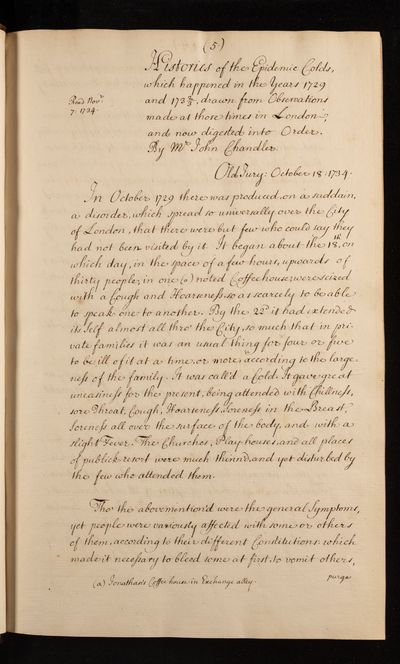 (5)
Histories of the Epidemic Colds,
which happened in the Years 1729
and 173⅔, drawn from Observations
made at those times in London,
and now digested into Order.
By Mr John Chandler.
Read Novr
7. 1734.
Old Jury: October 18. 1734.
In October 1729 there was produced, on a suddain,
a disorder, which spread so universally over the City
of London, that there were but few who could say they
had not been visited by it. It began about the 18th, on
which day, in the space of a few hours, upwards of
thirty people, in one (a) noted Coffeehouse, were seized
with a Cough and Hoarseness, so as scarcely to be able
to speak one to another. By the 22d it had extended
its self almost all thro' the City, so much that in pri-
vate families it was an usual thing for four or five
to be ill of it at a time, or more, according to the large-
ness of the family. It was call'd a Cold. It gave great
uneasiness for the present, being attended with Chillness,
sore Throat, Cough, Hoarseness, Soreness in the Breast,
Soreness all over the surface of the body, and with a
slight Fever. The Churches, Play-houses, and all places
of publick resort were much thinn'd, and yet disturbed by
the few who attended them.
Tho' the abovemention'd were the general Symptoms,
yet people were variously affected with some or others
of them, according to their different Constitutions: which
made it necessary to bleed some at first, to vomit others,
purge
(a) Jonathan's Coffee house in Exchange alley.